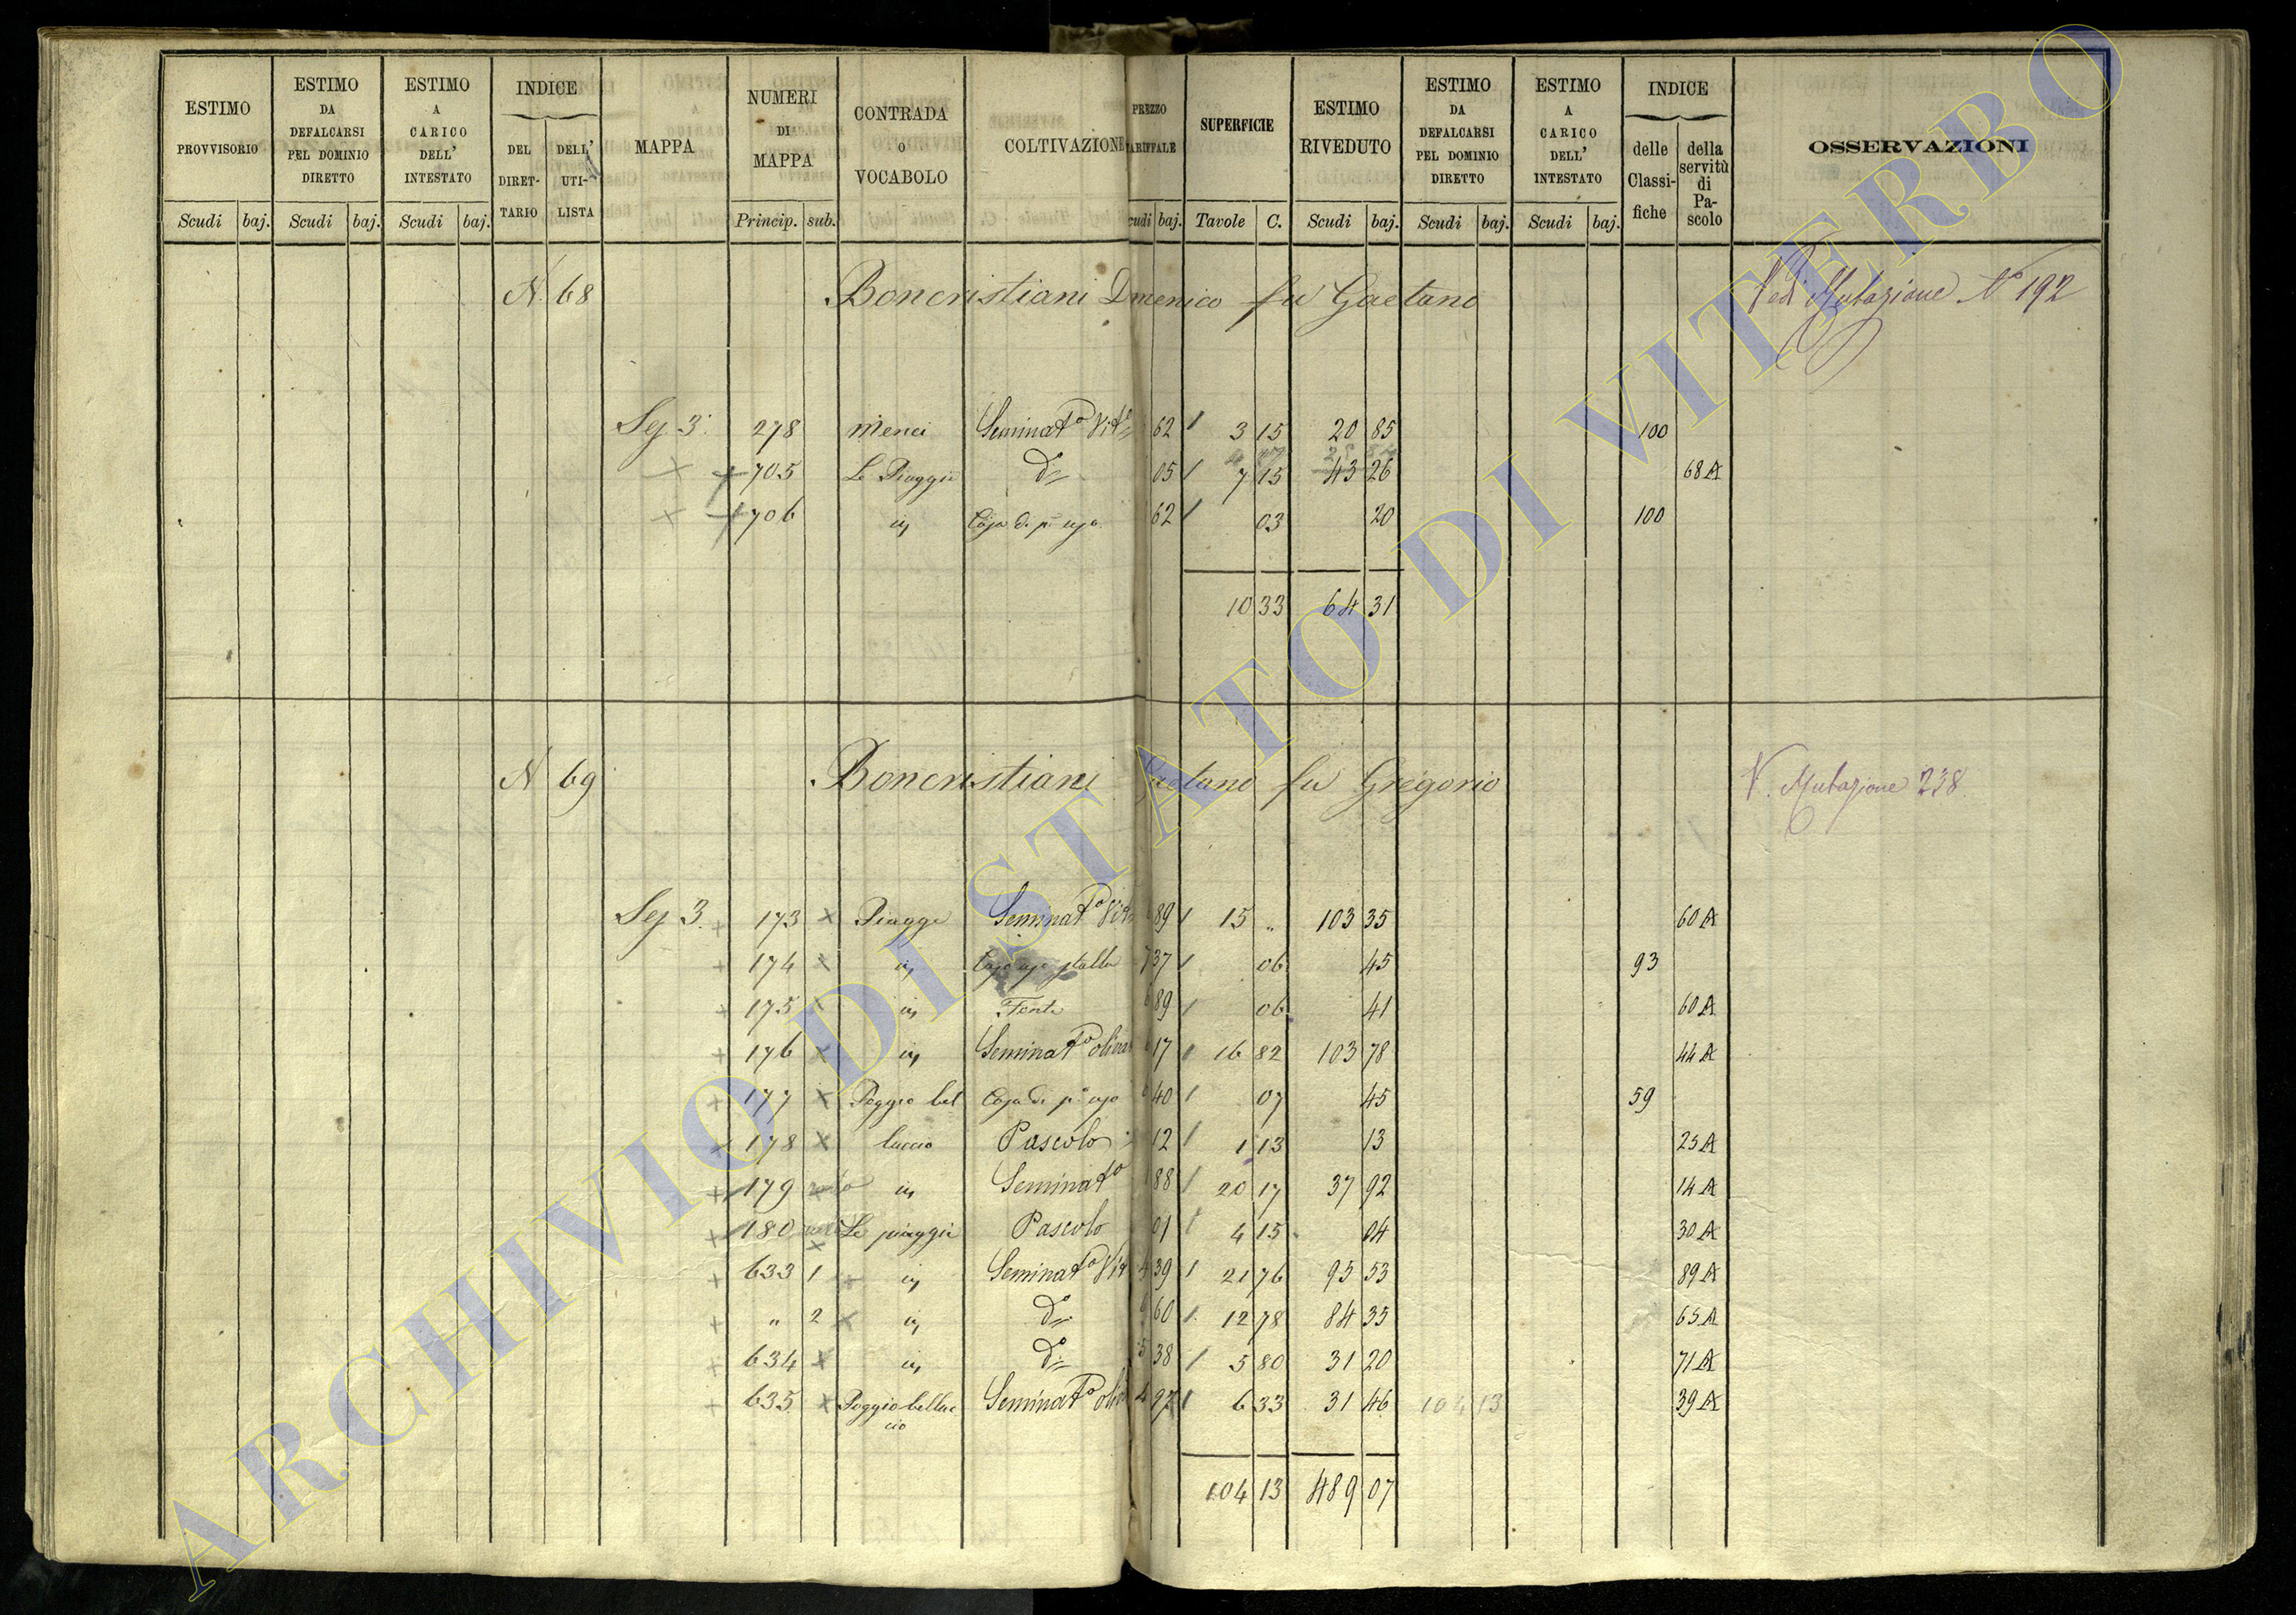 ESTIMO PROVVISORIO | ESTIMO DA DEFALCARSI PEL DOMINIO DIRETTO | ESTIMO A CARICO DELL' INTESTATO | INDICE DEL DIRETTARIO | DELL' UTILISTA | MAPPA | NUMERI DI MAPPA | CONTRADA O VOCABOLO | COLTIVAZIONE | PREZZO TARIFFALE | SUPERFICIE | ESTIMO RIVEDUTO | ESTIMO DA DEFALCARSI PEL DOMINIO DIRETTO | ESTIMO A CARICO DELL' INTESTATO | INDICE delle Classifiche | della servitù di Pascolo | OSSERVAZIONI
Scudi baj. Scudi baj. Scudi baj. Princip. sub. cudi baj. Tavole C. Scudi baj. Scudi baj. Scudi baj.
N. 68 Boncristiani Dmenico fu Gaetano Ved Mutazione N° 192
Sez 3. 278 Menci Seminat° Vit° 62 3 15 20 85 100
705 Le Piaggie d° 05 7 15 43 26 68 A
706 in Casa di p. uso 62 03 20 100
10 33 64 31
N 69 Boncristiani Gaetano fu Gregorio V. Mutazione 238.
Sez 3. 173 Piagge Seminat° Vit 89 15 „ 103 35 60 A
174 in Casa uso stalla 7 37 06 45 93
175 in Fonte 6 89 06 41 60 A
176 in Seminat° olivat 17 16 82 103 78 44 A
177 Poggio bel Casa di p. uso 6 40 07 45 59
178 luccio Pascolo 12 1 13 13 25 A
179 in Seminat° 1 88 20 17 37 92 14 A
180 Le piaggie Pascolo 01 4 15 04 30 A
633 1 in Seminat° Vit 4 39 21 76 95 53 89 A
„ 2 in d° 6 60 12 78 84 35 65 A
634 in d° 5 38 5 80 31 20 71 A
635 Poggio belluc Seminat° oliv 4 97 6 33 31 46 104 13 39 A
cio
104 13 489 07
ARCHIVIO DI STATO DI VITERBO